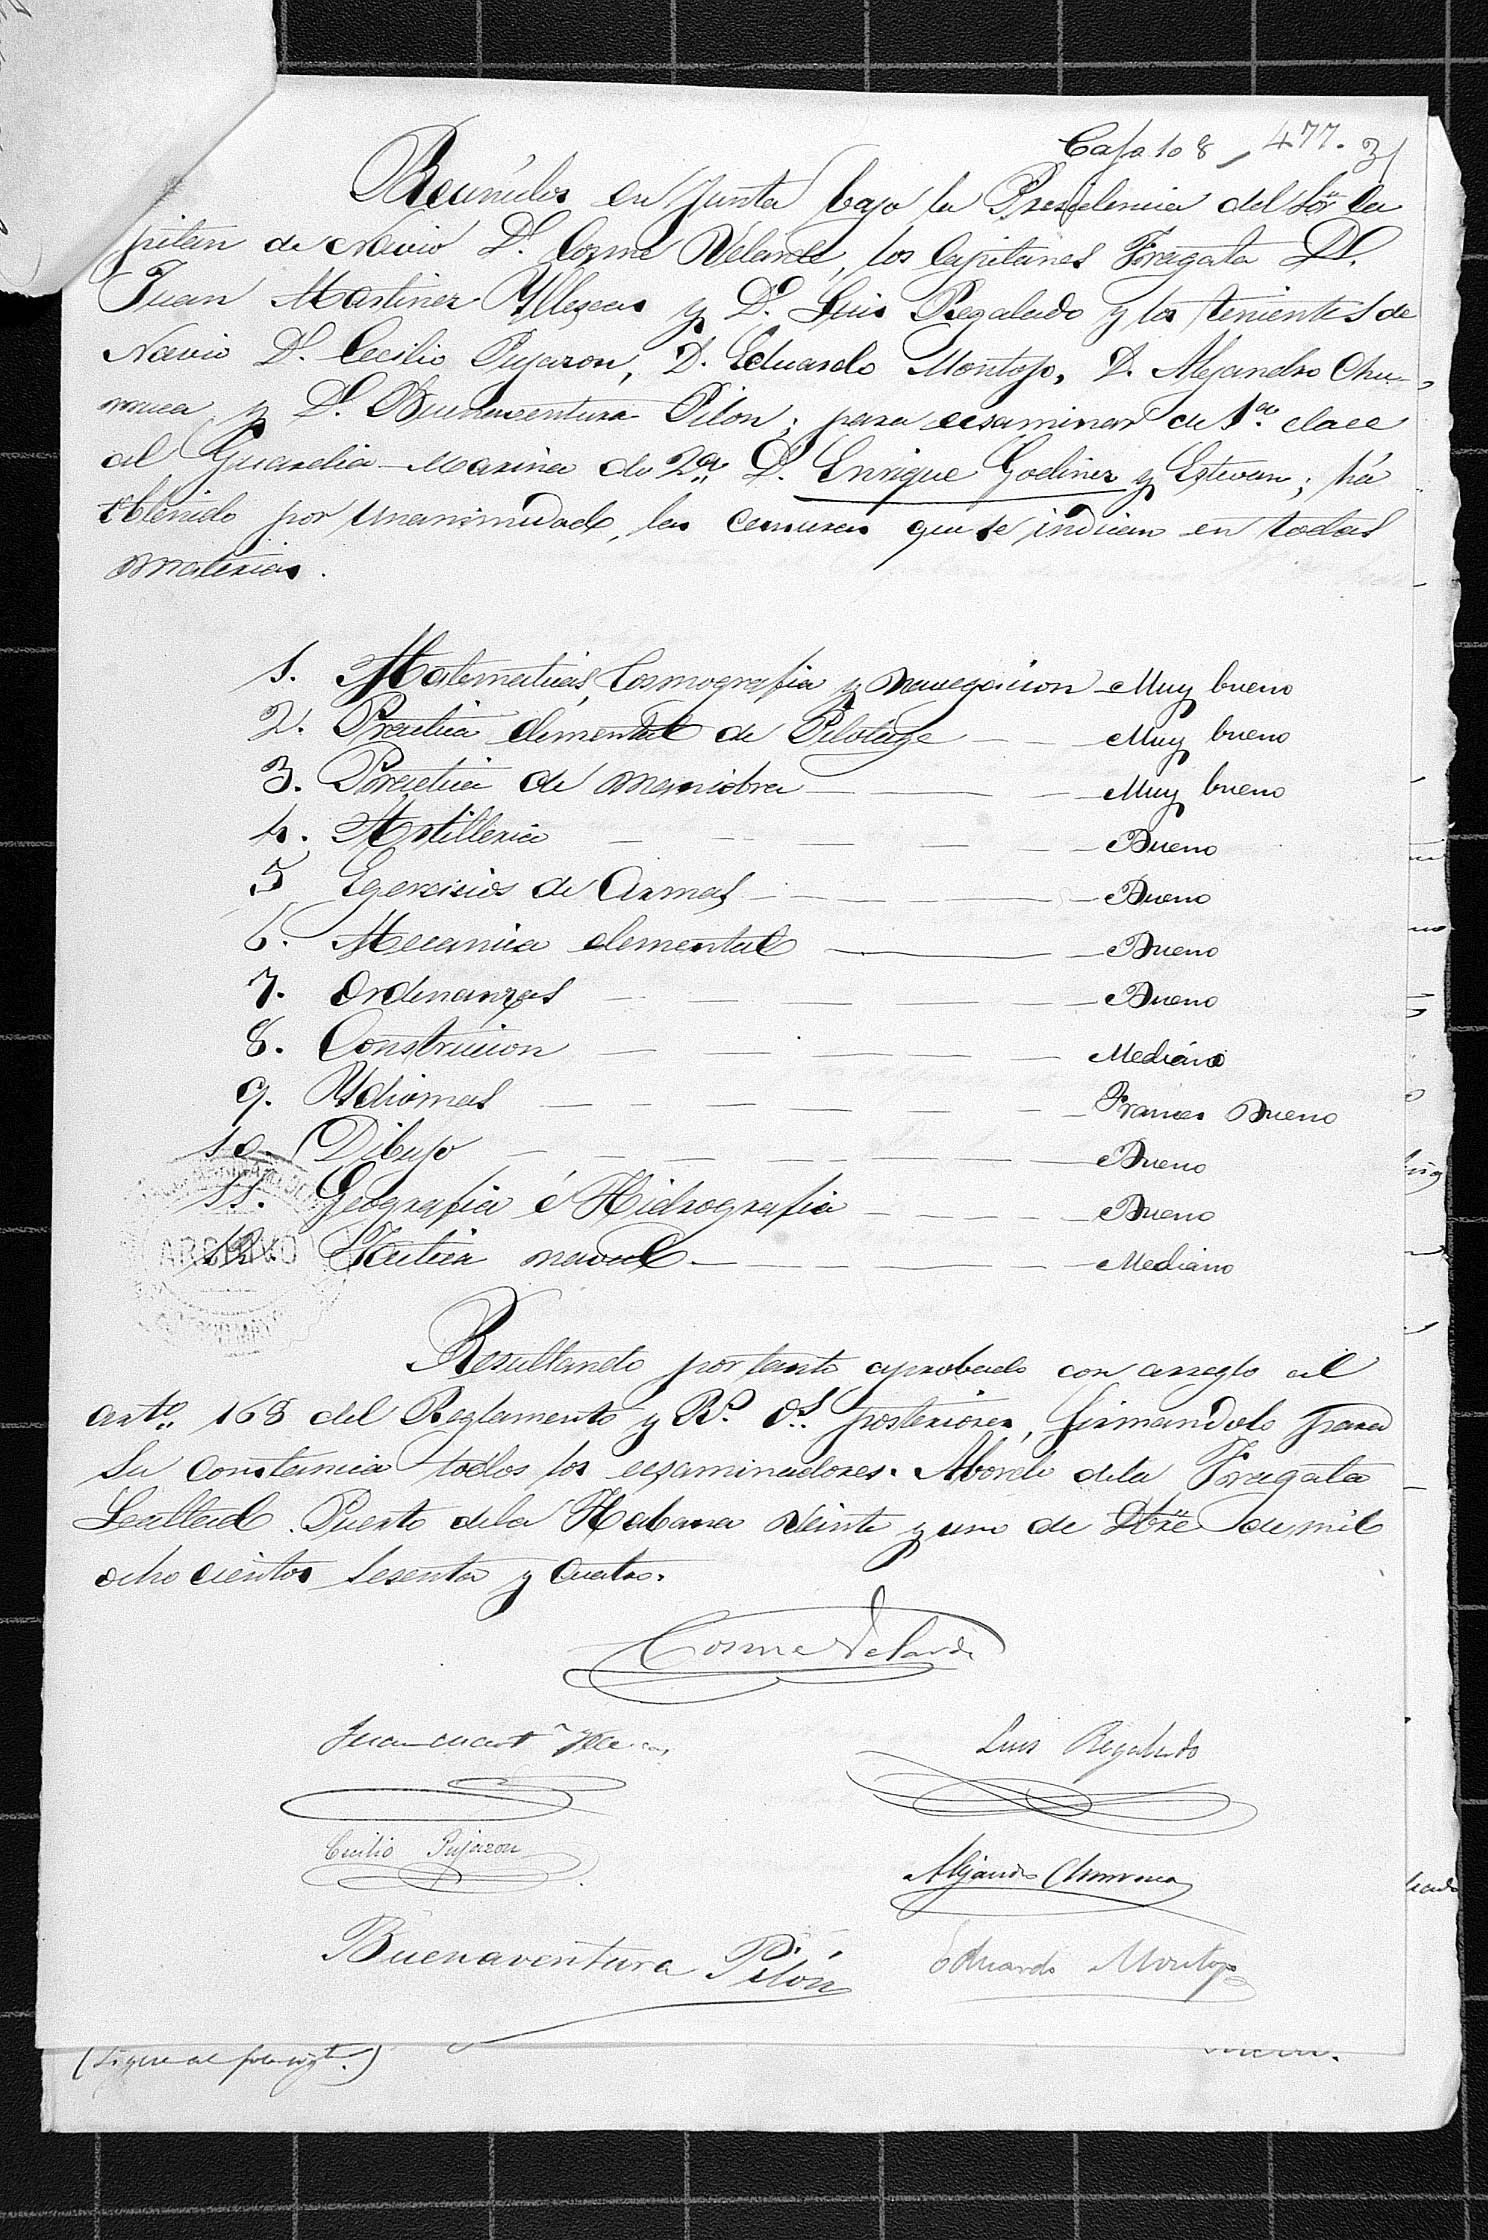 Caja 108, 477. 3
Reunidos en Junta bajo la Presidencia del Sor. Ca
pitan de Navio D. Cosme Velarde, los Capitanes Fragata D.
Juan Martinez Yllescas y D. Luis Regalado y los tenientes de
Navio D. Cecilio Pujazon, D. Eduardo Montojo, D. Alejandro Chu-
rruca y D. Buenaventura Pilon; para ecsaminar de 1ª. clace
al Guardia-Marina de 2ª D. Enrique Godinez y Estevan; há
obtenido por unanimidade, las censuras que se indican en todas
materias.
1. Matematicas, Cosmografia y navegacion - Muy bueno
2. Practica elemental de Pilotage - - - Muy bueno
3. Practica de maniobra - - - Muy bueno
4. Artilleria - - - Bueno
5 Egercicios de Armas - - - Bueno
6. Mecanica elemental - - - Bueno
7. Ordenanzas - - - Bueno
8. Construcion - - - Mediano
9. Ydiomas - - - Frances Bueno
10. Dibujo - - - Bueno
11. Geografia é Hidrografia - - - Bueno
12. Tactica naval - - - Mediano
ARCHIVO
Resultando por tanto aprobado con arreglo al
arto. 168 del Reglamento y Rs. Os. posteriores, firmandolo para
su constancia todos los ecsaminadores. Abordo dela Fragata
Lealtad. Puerto dela Habana veinte y uno de Dbre de mil
ocho cientos sesenta y cuatro.
Cosme Velarde
Juan Mart Yllescas
Luis Regalado
Cecilio Pujazon
Alejandro Churruca
Buenaventura Pilón
Eduardo Montojo
(Sigue al folio sigte.)